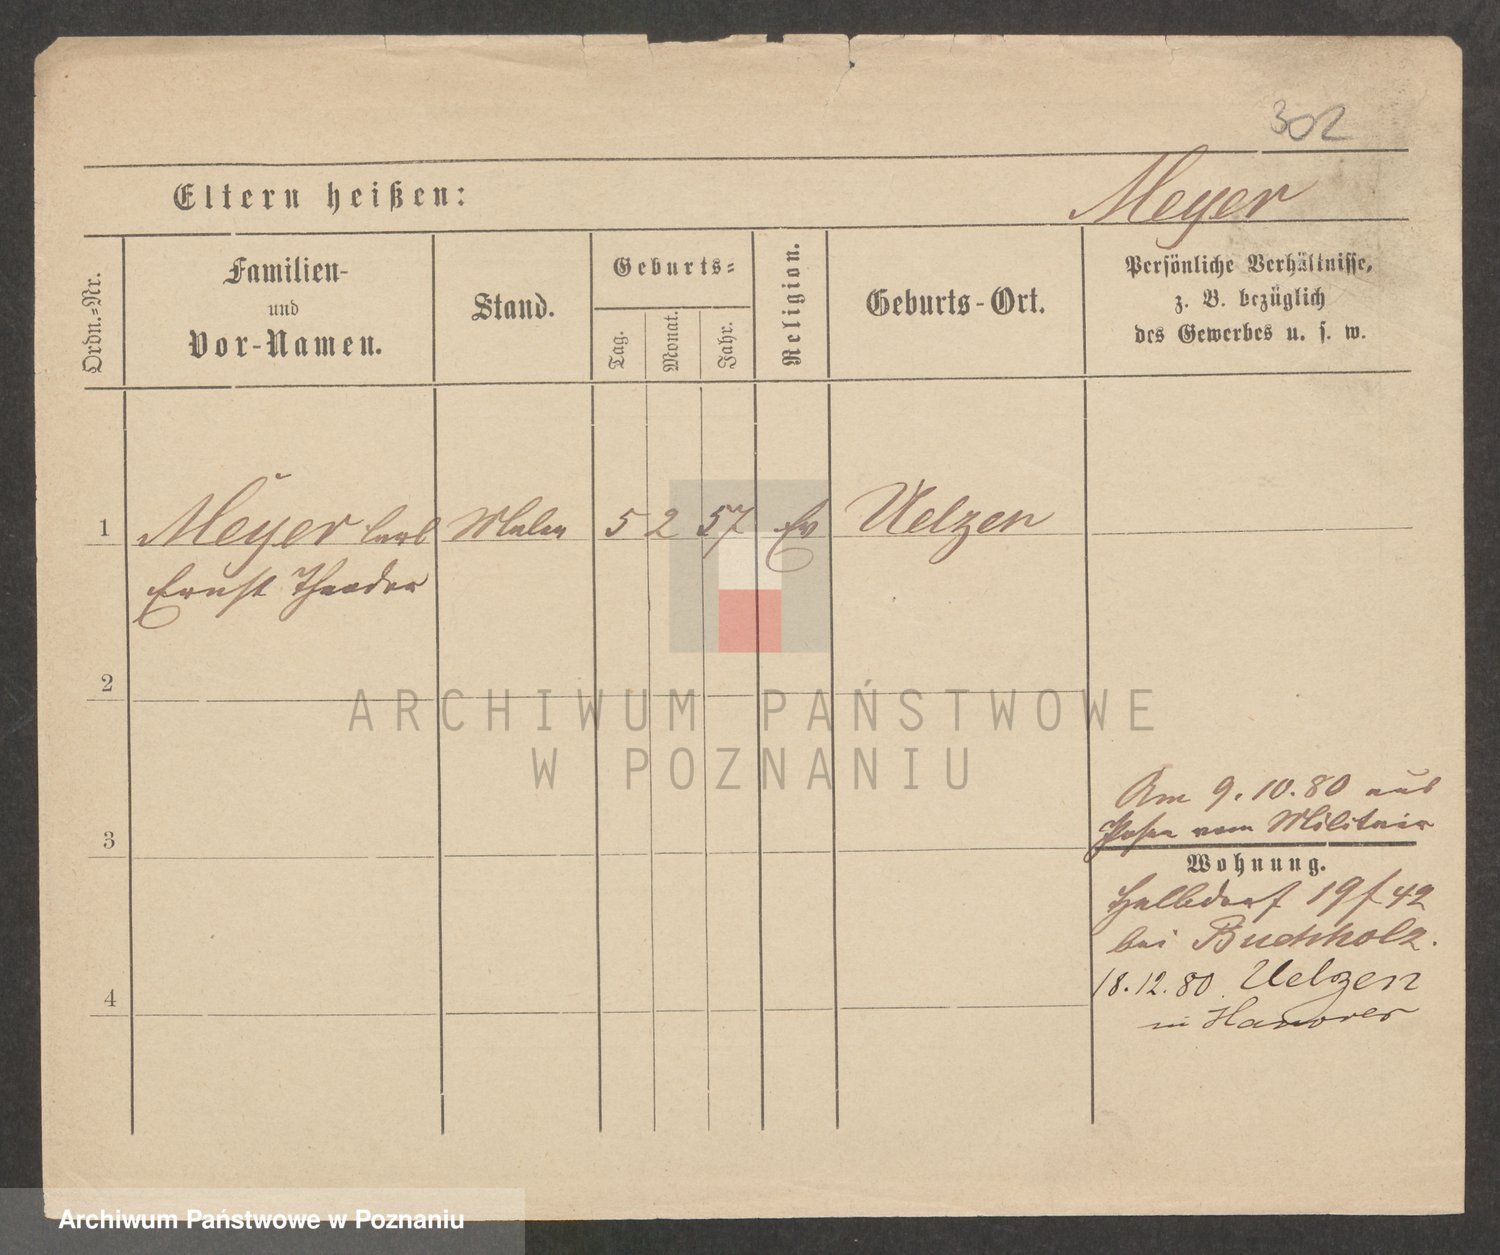 302
Eltern heißen:
Meyer
Ordn.-Nr.
Familien-
und
Vor-Namen.
Stand.
Geburts-
Tag.
Monat.
Jahr.
Religion.
Geburts-Ort.
Persönliche Verhältnisse,
z. B. bezüglich
des Gewerbes u. s. w.
1 Meyer Carl Maler 5 2 57 Ev Uelzen
Ernst Theodor
2
3
4
Am 9.10.80 aus
Posen vom Militair
Wohnung.
Halbdorf 19 f 42
bei Buchholz.
18.12.80. Uelzen
in Hanover
ARCHIWUM PAŃSTWOWE
W POZNANIU
Archiwum Państwowe w Poznaniu